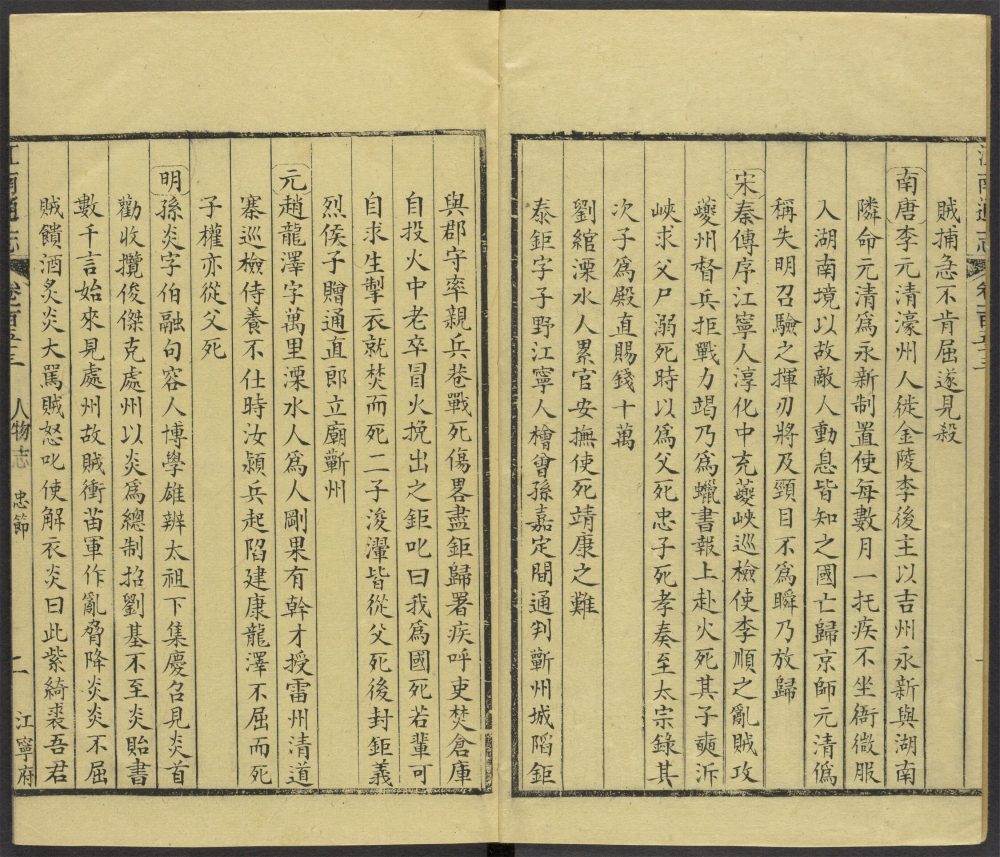 賊捕急不肯屈遂見殺
南唐李元清濠州人徙金陵李後主以吉州永新與湖南
隣命元清爲永新制置使每數月一托疾不坐衙微服
入湖南境以故敵人動息皆知之國亡歸京師元清僞
稱失明召驗之揮刃將及頸目不爲瞬乃放歸
宋秦傳序江寧人淳化中充夔峽巡檢使李順之亂賊攻
夔州督兵拒戰力竭乃爲蠟書報上赴火死其子奭泝
峽求父尸溺死時以爲父死忠子死孝奏至太宗錄其
次子爲殿直賜錢十萬
劉綰溧水人累官安撫使死靖康之難
秦鉅字子野江寧人檜曾孫嘉定間通判蘄州城陷鉅
與郡守率親兵巷戰死傷畧盡鉅歸署疾呼吏焚倉庫
自投火中老卒冒火挽出之鉅叱曰我爲國死若輩可
自求生掣衣就焚而死二子浚瀈皆從父死後封鉅義
烈侯子贈通直郎立廟蘄州
元趙龍澤字萬里溧水人爲人剛果有幹才授雷州清道
寨巡檢侍養不仕時汝潁兵起陷建康龍澤不屈而死
子權亦從父死
明孫炎字伯融句容人博學雄辨太祖下集慶召見炎首
勸收攬俊傑克處州以炎爲總制招劉基不至炎貽書
數千言始來見處州故賊衝苗軍作亂脅降炎炎不屈
賊饋酒炙炎大罵賊怒叱使解衣炎曰此紫綺裘吾君
江南通志 人物志 忠節 二 江寧府